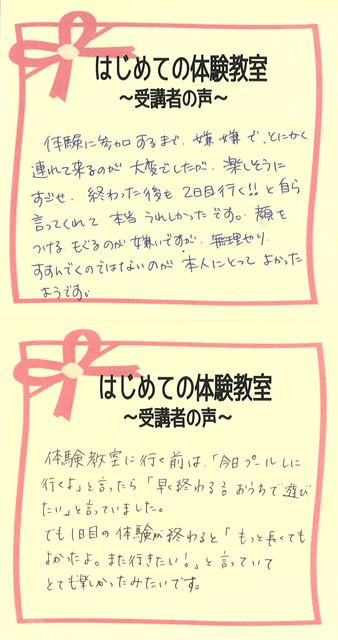 はじめての体験教室
～受講者の声～
体験に参加するまで、嫌嫌で、とにかく
連れて来るのが大変でしたが、楽しそうに
すごせ、終わった後も2日目行く!!と自ら
言ってくれて本当うれしかったです。顔を
つける もぐるのが嫌いですが、無理やり
すすんでくのではないのが本人にとってよかった
ようです。
はじめての体験教室
～受講者の声～
体験教室に行く前は、「今日プールしに
行くよ」と言ったら「早く終わる？おうちで遊び
たい」と言っていました。
でも1日目の体験が終わると「もっと長くても
よかったよ。また行きたい！」と言っていて
とても楽しかったみたいです。